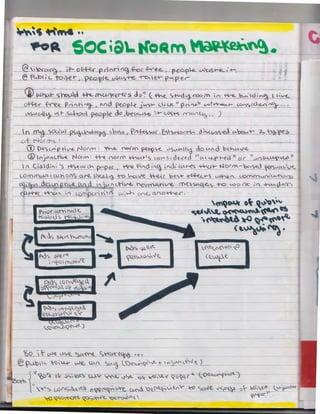 this time..
FOR SOCiaL NORM MaRKeTiNG.
@ library, it offer printing for free, people waste it.
@ Public toilet, people waste toilet paper
① What should the marketers do? (the study room in the building I live
offer free printing, and people just click "print" without considering....
usually at school people do, because it costs money,...)
In my social psychology class, Professor discussed about 2 types
of Norms:
① Descriptive Norm: the norm people usually do and behave
② Injunctive Norm: the norm that's considered "accepted" or "unaccepted"
In Cialdini's research paper, the finding indicates that Norm-based persuasive
communications are likely to have their best effects when communicators
align descriptive and injunctive normative messages to work in tandem
rather than in competition with one another.
Impact of public
service announcements
intended to promote
recycling.
Prior attitude
toward recycling
Ads were
informative
Ads were
persuasive
Intention to
recycle
Ads conveyed
approval of
Ads conveyed
(Descriptive)
So if we use same strategy...
@ public toilet we can say (Descriptive + injunctive)
Both
to promote positive behavior)